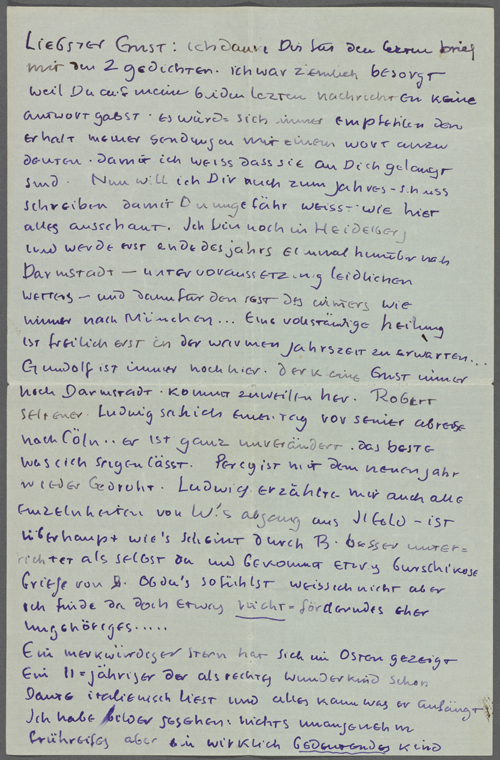 Liebster Ernst: ich danke Dir für den lezten brief
mit den 2 gedichten. ich war ziemlich besorgt
weil Du auf meine beiden lezten nachrichten keine
antwort gabst. es würde sich immer empfehlen den
erhalt meiner sendungen mit einem wort anzu
deuten. damit ich weiss dass sie an Dich gelangt
sind. Nun will ich Dir auch zum jahres-schluss
schreiben damit Du ungefähr weisst wie hier
alles ausschaut. Ich bin noch in Heidelberg
und werde erst ende des jahrs einmal hinüber nach
Darmstadt – unter voraussetzung leidlichen
wetters – und dann für den rest des winters wie
immer nach München... Eine vollständige heilung
ist freilich erst in der warmen jahrszeit zu erwarten...
Gundolf ist immer noch hier. der kleine Ernst immer
noch Darmstadt. kommt zuweilen her. Robert
seltener. Ludwig sah ich einen tag vor seiner abreise
nach Cöln.. er ist ganz unverändert. das beste
was sich sagen lässt. Percy ist mit dem neuen jahr
wieder Gedroht. Ludwig erzählte mir auch alle
einzelnheiten von W.'s abgang aus – ist
überhaupt wie's scheint durch B. besser unter=
richtet als selbst du und Gekommt etwas burschikose
Briefe von B. Ob du's so fühlst weiss ich nicht aber
ich finde da doch etwas nicht=förderndes eher
ungehöriges.....
Ein merkwürdiger stern hat sich im Osten gezeigt
Ein 11=jähriger der als rechtes wunderkind schon
Dante italienisch liest und alles kann was er anfängt
Ich habe bilder gesehen: nichts unangenehm
frühreifes aber ein wirklich Bedeutendes kind